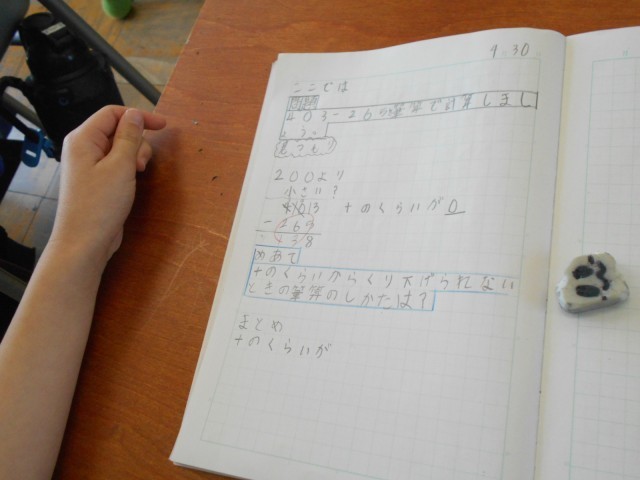 9.30
ここでは
問題
403-265の筆算で計算しまし
ょう。
見つもり
200より
小さい?
403 十のくらいが0
-265
138
めあて
十のくらいからくり下げられない
ときの筆算のしかたは?
まとめ
十のくらいが